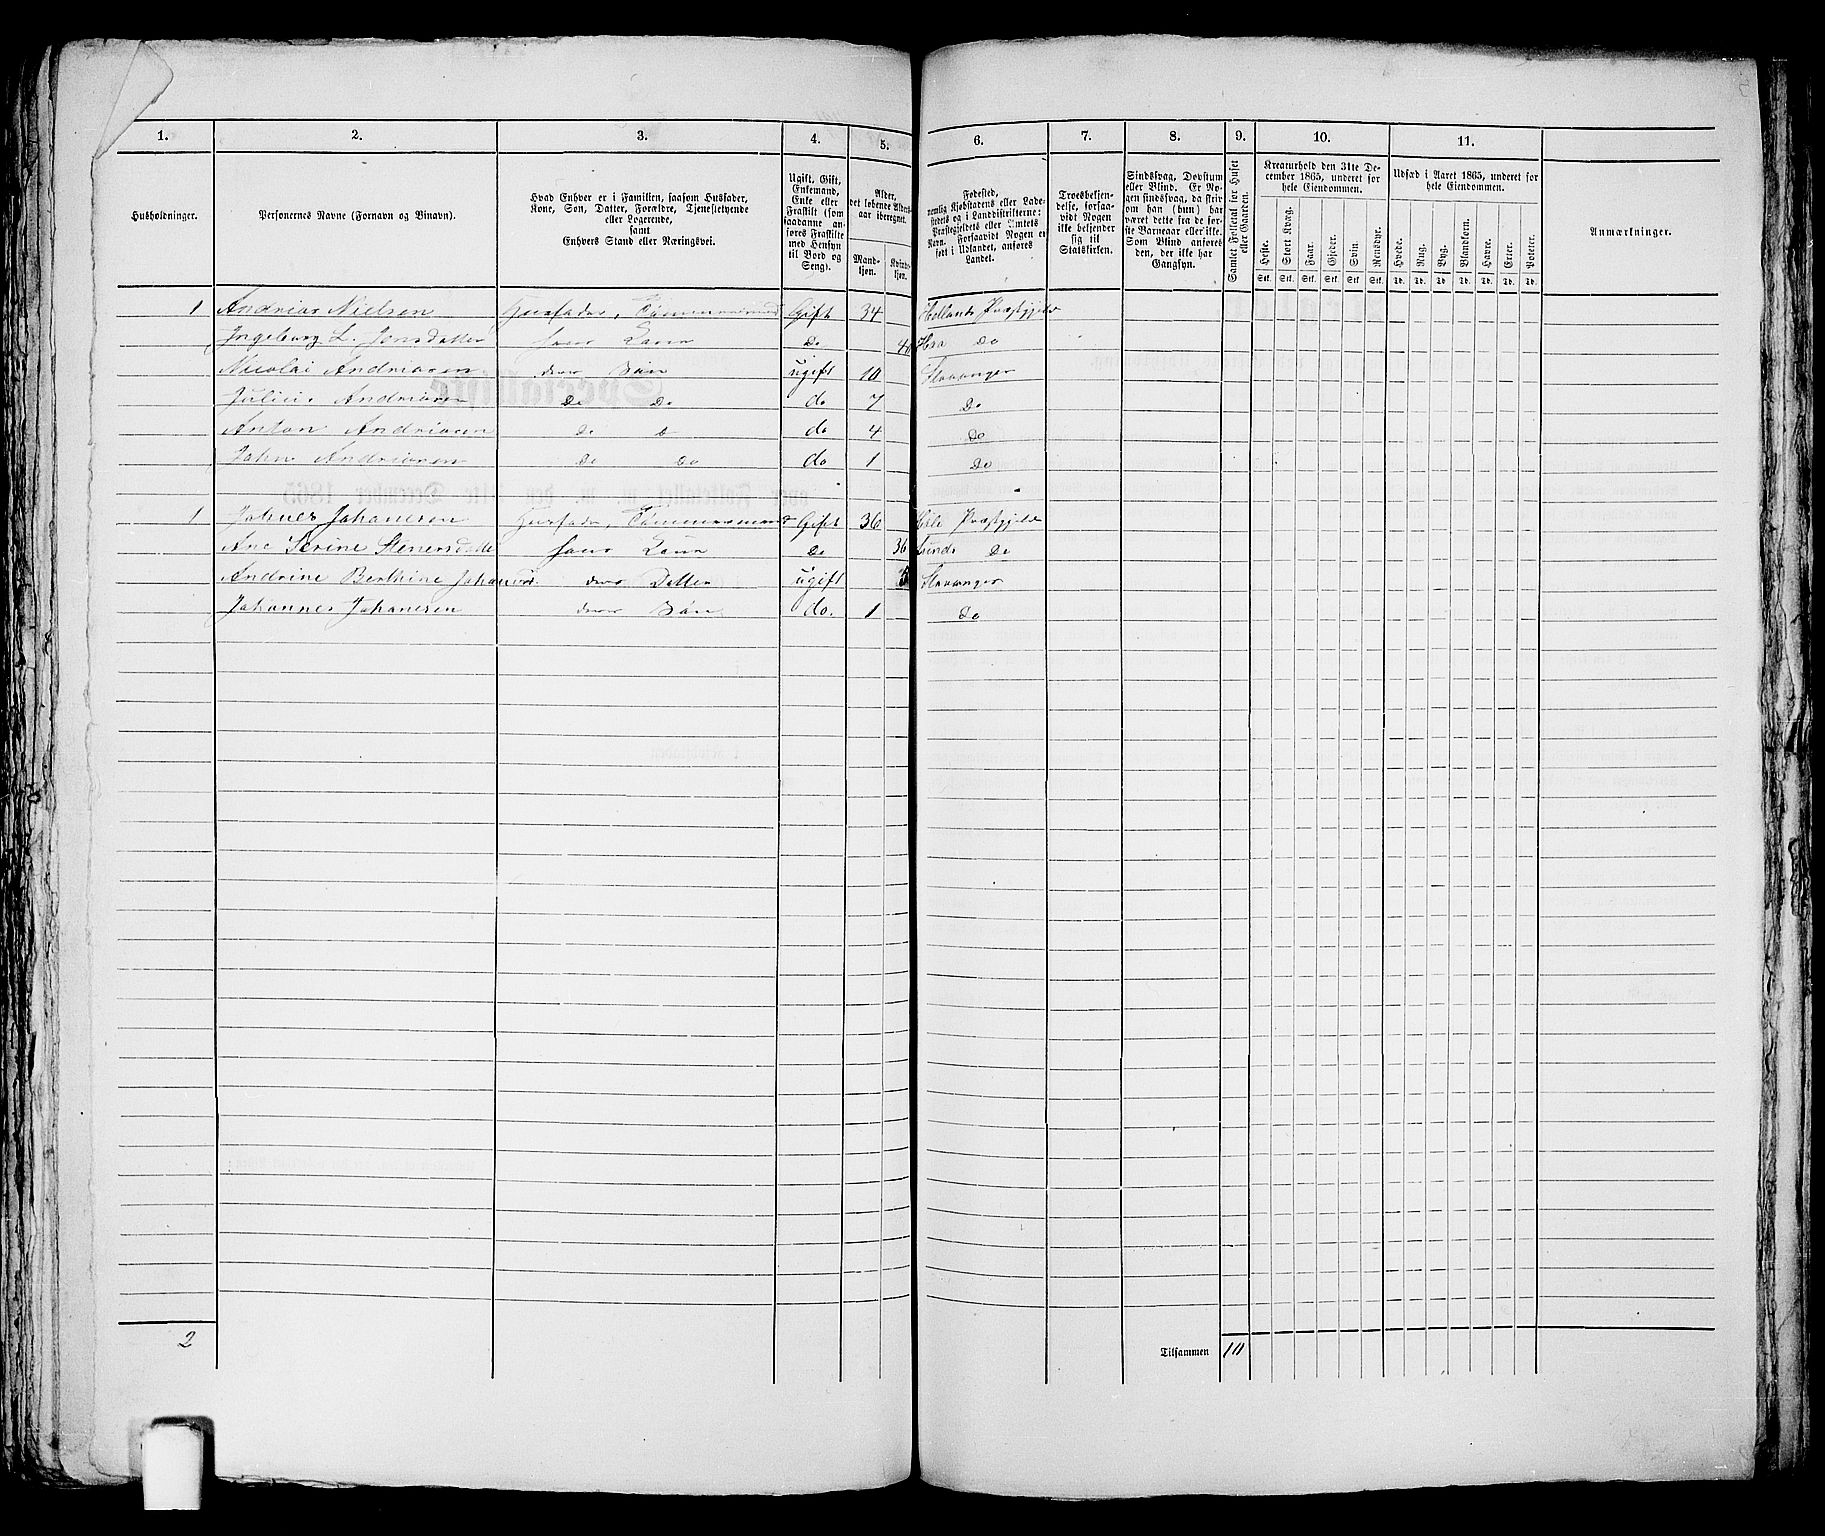 1. 2. 3. 4. 5. 6. 7. 8. 9. 10. 11.
Husholdninger.
Personernes Navne (Fornavn og Binavn).
Hvad Enhver er i Familien, saasom Husfader,
Kone, Søn, Datter, Forældre, Tjenestetyende
eller Logerende,
samt
Enhvers Stand eller Næringsvei.
Ugift, Gift,
Enkemand,
Enke eller
Fraskilt (som
saadanne an-
føres Fraskilte
med Hensyn
til Bord og
Seng).
Alder,
det løbende Alders-
aar iberegnet.
Mand-
kjøn.
Kvinde-
kjøn.
Fødested,
nemlig Kjøbstadens eller Lade-
stedets og i Landdistrikterne:
Præstegjeldets eller Amtets
Navn. Forsaavidt Nogen er
født i Udlandet, anføres
Landet.
Troesbekjen-
delse, forsaa-
vidt Nogen
ikke bekjender
sig til
Statskirken.
Sindssvag, Døvstum
eller Blind. Er No-
gen sindssvag, da skriv
om han (hun) har
været dette fra de før-
ste Barneaar eller ikke.
Som Blind anføres
den, der ikke har
Gangsyn.
Samlet Folketal for Huset
eller Gaarden.
Kreaturhold den 31te De-
cember 1865, underet for
hele Eiendommen.
Heste. Stort Kvæg. Faar. Gjeder. Svin. Rensdyr.
Stk. Stk. Stk. Stk. Stk. Stk.
Udsæd i Aaret 1865, underet for
hele Eiendommen.
Hvede. Rug. Byg. Blandkorn. Havre. Erter. Poteter.
Td. Td. Td. Td. Td. Td. Td.
Anmærkninger.
1 Andrias Nielsen Husfader, Tømmermand Gift 34 Hellands Præstgjeld
Ingeborg L. Jensdatter hans Kone Do 40 Haa Do
Nicolai Andriasen deres Søn ugift 10 Stavanger
Julius Andriasen Do Do do 7 Do
Anton Andriasen Do Do do 4 Do
John Andriasen Do Do do 1 Do
1 Johnes Johanesen Husfader, Tømmermand Gift 36 Præstgjeld
Ane Serine Stenersdatter hans Kone Do 36 Lunds Do
Andrine Berthine Johanesd. deres Datter ugift Stavanger
Johannes Johanesen deres Søn do. 1 Do
2 Tilsammen 10